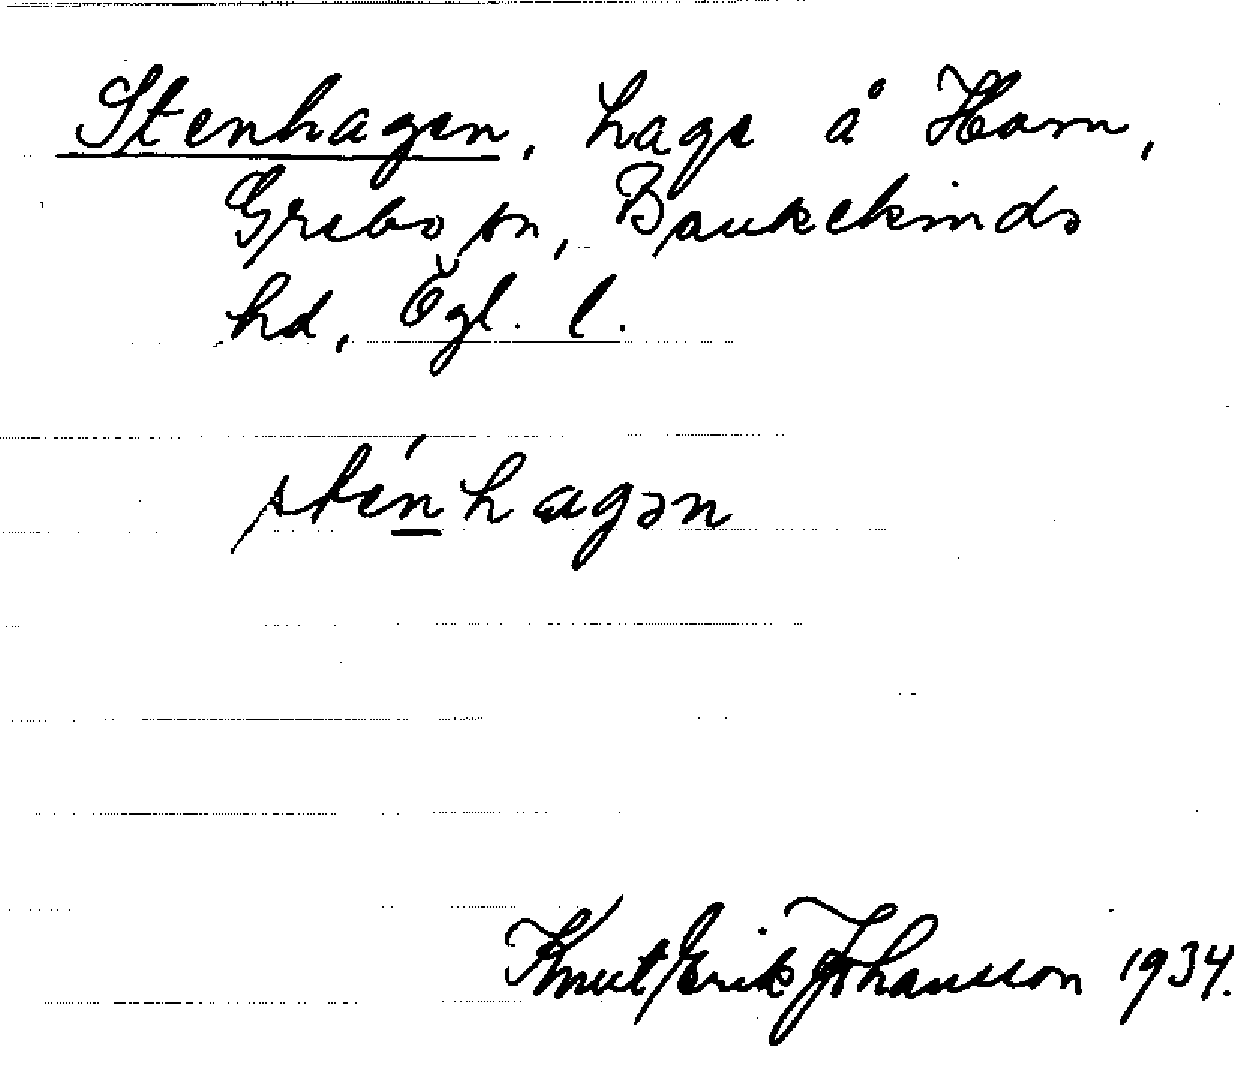 Stenhagen, hage å Horn,
Grebo sn, Bankekinds
hd, Ögl. l.
sténhagən
Knut Erik Johansson 1934.